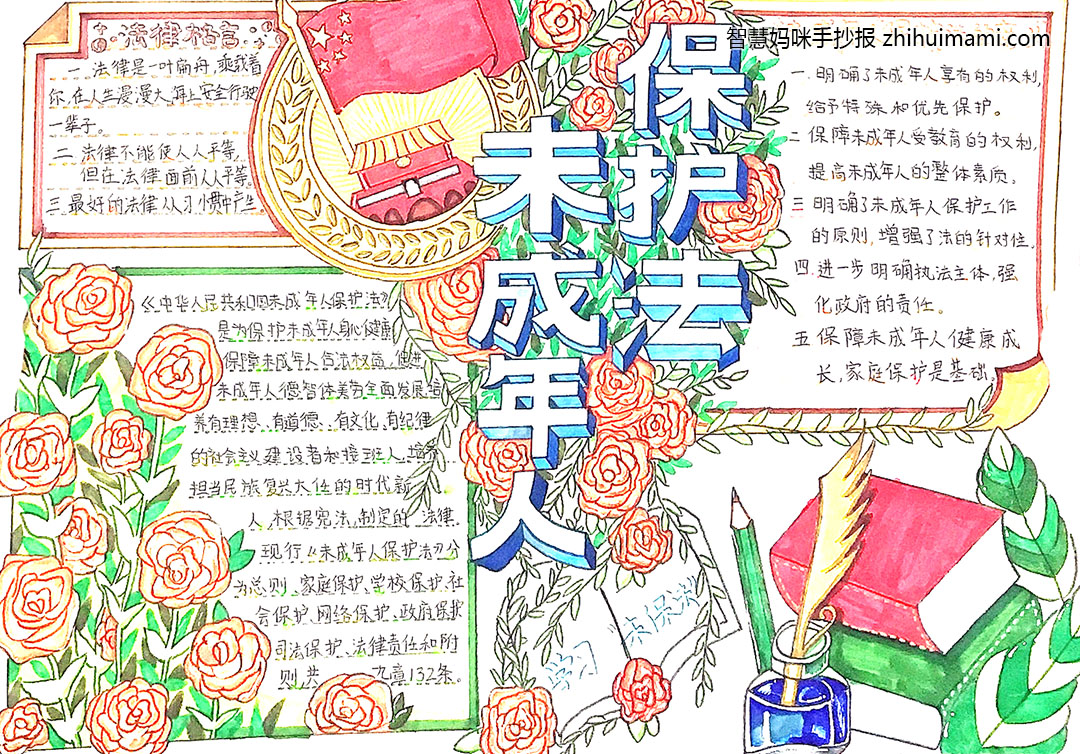 智慧妈咪手抄报 zhihuimami.com
未成年人
保护法
法律格言
一 法律是一叶扁舟,乘载着
你,在人生漫漫大海上安全行驶
一辈子。
二 法律不能使人人平等,
但在法律面前人人平等。
三 最好的法律从习惯中产生
《中华人民共和国未成年人保护法》
是为保护未成年人身心健康
保障未成年人合法权益,促进
未成年人德智体美劳全面发展,培
养有理想、有道德、有文化、有纪律
的社会主义建设者和接班人,培养
担当民族复兴大任的时代新
人,根据宪法,制定的 法律.
现行《未成年人保护法》分
为总则、家庭保护、学校保护、社
会保护、网络保护、政府保护
司法保护、法律责任和附
则,共 九章132条。
一 明确了未成年人享有的权利,
给予特殊和优先保护。
二 保障未成年人受教育的权利,
提高未成年人的整体素质。
三 明确了未成年人保护工作
的原则,增强了法的针对性.
四.进一步明确执法主体,强
化政府的责任。
五 保障未成年人健康成
长,家庭保护是基础。
学习
未保法